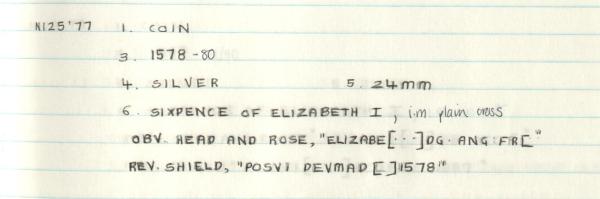 N125'77 1. COIN
3. 1578-80
4. SILVER 5. 24mm
6. SIXPENCE OF ELIZABETH I, i.m plain cross
OBV. HEAD AND ROSE, "ELIZABE[···]DG·ANG·FR["
REV. SHIELD, "POSVI DEVMAD []1578"